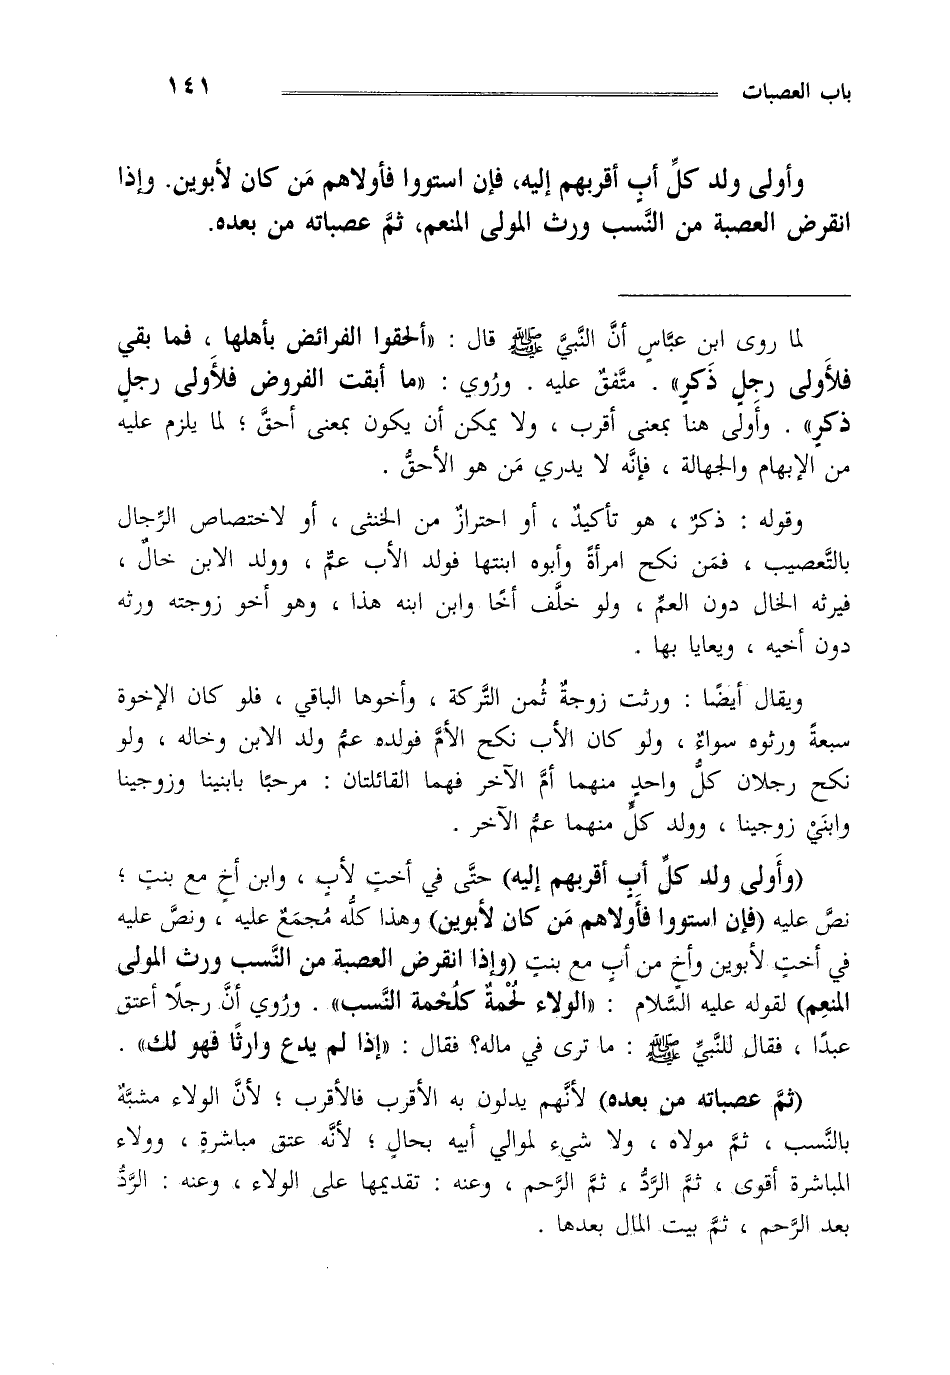 باب العصبات ١٤١
وأولى ولد كلِّ أبٍ أقربهم إليه، فإن استووا فأولاهم مَن كان لأبوين. وإذا
انقرض العصبة من النَّسب ورث المولى المنعم، ثمَّ عصباته من بعده.
لما روى ابن عبَّاسٍ أنَّ النَّبيَّ ﷺ قال : «ألحقوا الفرائض بأهلها ، فما بقي
فلأَولى رجلٍ ذَكرٍ» . متَّفقٌ عليه . ورُوي : «ما أبقت الفروض فلأَولى رجلٍ
ذكرٍ» . وأَولى هنا بمعنى أقرب ، ولا يمكن أن يكون بمعنى أحقَّ ؛ لما يلزم عليه
من الإبهام والجهالة ، فإنَّه لا يدري مَن هو الأحقُّ .
وقوله : ذكرٌ ، هو تأكيدٌ ، أو احترازٌ من الخنثى ، أو لاختصاص الرِّجال
بالتَّعصيب ، فمَن نكح امرأةً وأبوه ابنتها فولد الأب عمٌّ ، وولد الابن خالٌ ،
فيرثه الخال دون العمِّ ، ولو خلَّف أخًا وابن ابنه هذا ، وهو أخو زوجته ورثه
دون أخيه ، ويعايا بها .
ويقال أيضًا : ورثت زوجةٌ ثُمن التَّركة ، وأخوها الباقي ، فلو كان الإخوة
سبعةً ورثوه سواءٌ ، ولو كان الأب نكح الأمَّ فولده عمُّ ولد الابن وخاله ، ولو
نكح رجلان كلُّ واحدٍ منهما أمَّ الآخر فهما القائلتان : مرحبًا بابنينا وزوجينا
وابنَيْ زوجينا ، وولد كلٍّ منهما عمُّ الآخر .
(وأَولى ولد كلِّ أبٍ أقربهم إليه) حتَّى في أختٍ لأبٍ ، وابن أخٍ مع بنتٍ ؛
نصَّ عليه (فإن استووا فأَولاهم مَن كان لأبوين) وهذا كلُّه مُجمَعٌ عليه ، ونصَّ عليه
في أختٍ لأبوين وأخٍ من أبٍ مع بنتٍ (وإذا انقرض العصبة من النَّسب ورث المولى
المنعم) لقوله عليه السَّلام : «الولاء لُحْمةٌ كلُحْمة النَّسب» . ورُوي أنَّ رجلًا أعتق
عبدًا ، فقال للنَّبيِّ ﷺ : ما ترى في ماله؟ فقال : «إذا لم يدع وارثًا فهو لك» .
(ثمَّ عصباته من بعده) لأنَّهم يدلون به الأقرب فالأقرب ؛ لأنَّ الولاء مشبَّهٌ
بالنَّسب ، ثمَّ مولاه ، ولا شيء لموالي أبيه بحالٍ ؛ لأنَّه عتق مباشرةٍ ، وولاء
المباشرة أقوى ، ثمَّ الرَّدُّ ، ثمَّ الرَّحم ، وعنه : تقديمها على الولاء ، وعنه : الرَّدُّ
بعد الرَّحم ، ثمَّ بيت المال بعدها .